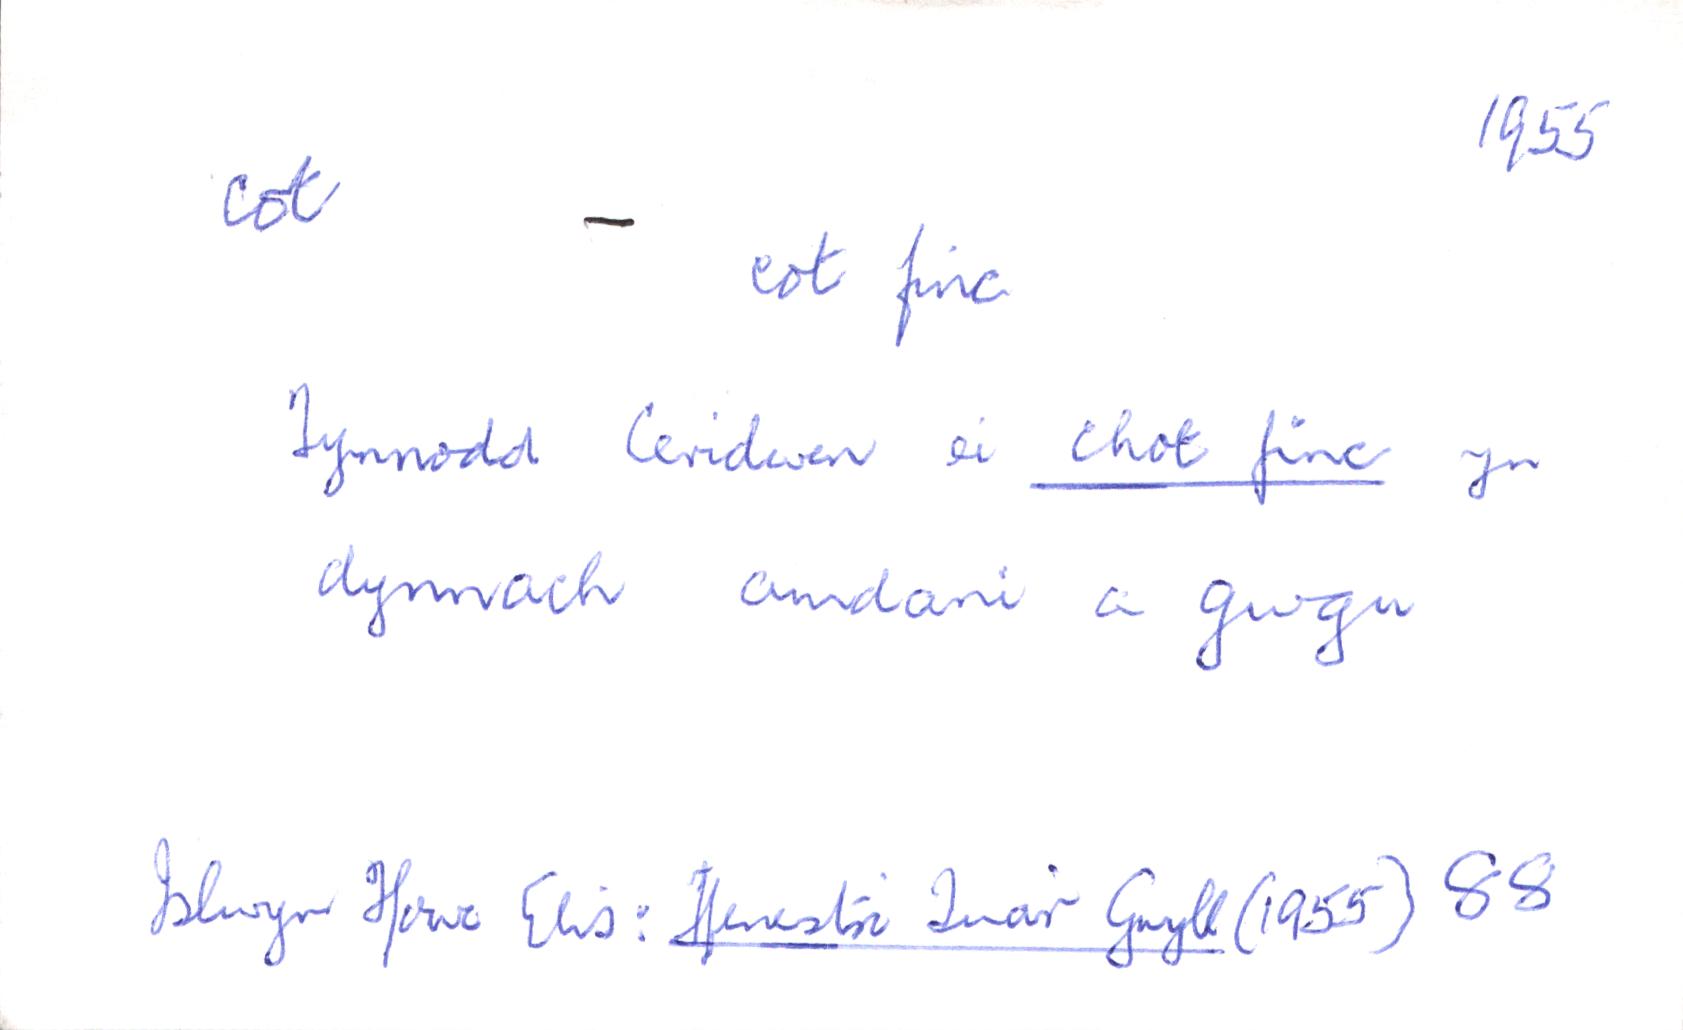 1955
cot –
cot finc
Tynnodd Ceridwen ei chot finc yn
dynnach amdani a gwgu
Islwyn Ffowc Elis: Ffenestri Tua'r Gwyll (1955) 88